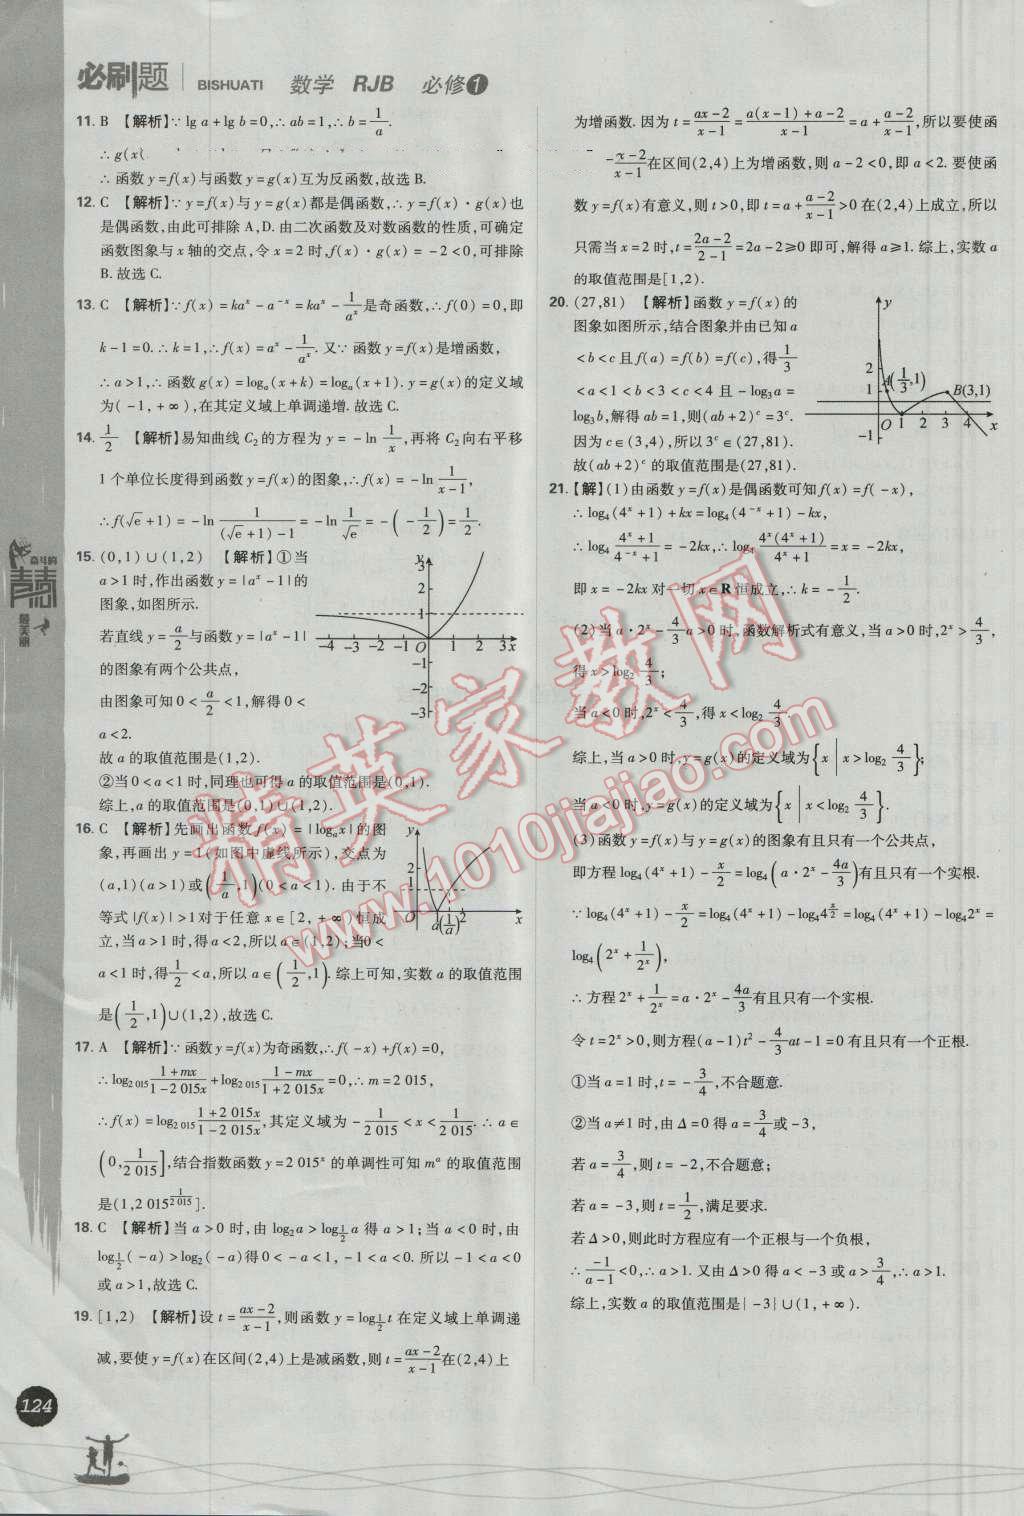 必刷题 BISHUATI 数学 RJB 必修1
11. B 【解析】∵lg a+lg b=0,∴ab=1,∴b=1/a.
∴g(x
∴函数y=f(x)与函数y=g(x)互为反函数,故选B.
12. C 【解析】∵y=f(x)与y=g(x)都是偶函数,∴y=f(x)·g(x)也
是偶函数,由此可排除A,D.由二次函数及对数函数的性质,可确定
函数图象与x轴的交点,令x=2时,f(x)·g(x)=-2<0,可排除
B.故选C.
13. C 【解析】∵f(x)=ka^x-a^(-x)=ka^x-1/a^x是奇函数,∴f(0)=0,即
k-1=0.∴k=1,∴f(x)=a^x-1/a^x.又∵函数f(x)是增函数,
∴a>1,∴函数g(x)=log_a(x+k)=log_a(x+1).y=g(x)的定义域
为(-1,+∞),在其定义域上单调递增.故选C.
14. 1/2 【解析】易知曲线C₂的方程为y=-ln 1/x,再将C₂向右平移
1个单位长度得到函数y=f(x)的图象,∴f(x)=-ln 1/(x-1),
∴f(√e+1)=-ln 1/((√e+1)-1)=-ln 1/√e=-(-1/2)=1/2.
15. (0,1)∪(1,2) 【解析】①当
a>1时,作出函数y=|a^x-1|的
图象,如图所示.
若直线y=a/2与函数y=|a^x-1|
的图象有两个公共点,
由图象可知0<a/2<1,解得0<
a<2.
故a的取值范围是(1,2).
②当0<a<1时,同理也可得a的取值范围是(0,1).
综上,a的取值范围是(0,1)∪(1,2).
y 3 2 1 -4 -3 -2 -1 O 1 2 3 x -1 -2 -3
16. C 【解析】先画出函数f(x)=|log_a x|的图
象,再画出y=1(如图中虚线所示),交点为
(a,1)(a>1)或(1/a,1)(0<a<1).由于不
等式|f(x)|>1对于任意x∈[2,+∞)恒成
立,当a>1时,得a<2,所以a∈(1,2);当0<
a<1时,得1/2<a,所以a∈(1/2,1).综上可知,实数a的取值范围
是(1/2,1)∪(1,2),故选C.
y 2 1 O a(1/a) 2 x
17. A 【解析】∵函数y=f(x)为奇函数,∴f(-x)+f(x)=0,
∴log_2 015 (1+mx)/(1-2 015x)+log_2 015 (1-mx)/(1+2 015x)=0,∴m=2 015,
∴f(x)=log_2 015 (1+2 015x)/(1-2 015x),其定义域为-1/2 015<x<1/2 015.∴a∈
(0,1/2 015],结合指数函数y=2 015^x的单调性可知m^a的取值范围
是(1,2 015^(1/2 015)].
18. C 【解析】当a>0时,由log₂a>log_(1/2) a得a>1;当a<0时,由
log_(1/2)(-a)>log₂(-a)得0<-a<1,-1<a<0.所以-1<a<0
或a>1,故选C.
19. [1,2) 【解析】设t=(ax-2)/(x-1),则函数y=log_(1/2) t在定义域上单调递
减,要使y=f(x)在区间(2,4)上是减函数,则t=(ax-2)/(x-1)在(2,4)上
为增函数.因为t=(ax-2)/(x-1)=(a(x-1)+a-2)/(x-1)=a+(a-2)/(x-1),所以要使函
(x-2)/(x-1)在区间(2,4)上为增函数,则a-2<0,即a<2.要使函
数y=f(x)有意义,则t>0,即t=a+(a-2)/(x-1)>0在(2,4)上成立,所以
只需当x=2时,t=(2a-2)/(2-1)=2a-2≥0即可,解得a≥1.综上,实数a
的取值范围是[1,2).
20. (27,81) 【解析】函数y=f(x)的
图象如图所示,结合图象并由已知a
<b<c且f(a)=f(b)=f(c),得1/3
<a<1<b<3<c<4且-log₃a=
log₃b,解得ab=1,则(ab+2)^c=3^c.
因为c∈(3,4),所以3^c∈(27,81).
故(ab+2)^c的取值范围是(27,81).
y 2 1 A(1/3,1) B(3,1) O 1 2 3 4 x -1
21. 【解】(1)由函数y=f(x)是偶函数可知f(x)=f(-x),
∴log₄(4^x+1)+kx=log₄(4^(-x)+1)-kx,
∴log₄ (4^x+1)/(4^(-x)+1)=-2kx,∴log₄ 4^x(4^x+1)/(4^x+1)=x=-2kx,
即x=-2kx对一切x∈R恒成立,∴k=-1/2.
(2)当a·2^x-4/3 a>0时,函数解析式有意义,当a>0时,2^x>4/3,
得x>log₂ 4/3;
当a<0时,2^x<4/3,得x<log₂ 4/3.
综上,当a>0时,y=g(x)的定义域为{x|x>log₂ 4/3};
当a<0时,y=g(x)的定义域为{x|x<log₂ 4/3}.
(3)函数y=f(x)与y=g(x)的图象有且只有一个公共点,
即方程log₄(4^x+1)-x/2=log₄(a·2^x-4a/3)有且只有一个实根.
∵log₄(4^x+1)-x/2=log₄(4^x+1)-log₄4^(x/2)=log₄(4^x+1)-log₄2^x=
log₄(2^x+1/2^x),
∴方程2^x+1/2^x=a·2^x-4a/3有且只有一个实根.
令t=2^x>0,则方程(a-1)t²-4/3 at-1=0有且只有一个正根.
①当a=1时,t=-3/4,不合题意.
②当a≠1时,由Δ=0得a=3/4或-3,
若a=3/4,则t=-2,不合题意;
若a=-3,则t=1/2,满足要求.
若Δ>0,则此时方程应有一个正根与一个负根,
∴-1/(a-1)<0,∴a>1.又由Δ>0得a<-3或a>3/4,∴a>1.
综上,实数a的取值范围是{-3}∪(1,+∞).
奋斗的
青志
最美丽
124
精英家教网
www.1010jiajiao.com